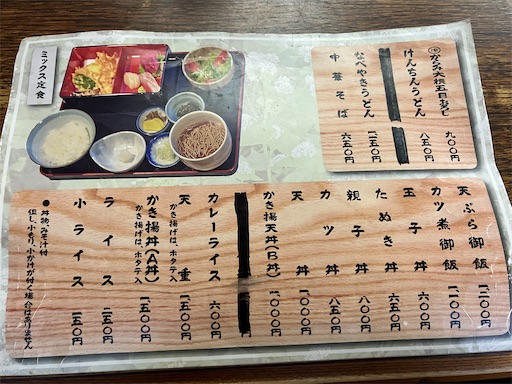 ミックス定食
からみ大根五目おろし 九〇〇円
けんちんうどん 八五〇円
なべやきうどん 一二五〇円
中華そば 六五〇円
天ぷら御飯 一二〇〇円
カツ煮御飯 一一〇〇円
玉子丼 六〇〇円
たぬき丼 六五〇円
親子丼 八〇〇円
カツ丼 八五〇円
天丼 一〇〇〇円
かき揚天丼(B丼) 一一〇〇円
カレーライス 六〇〇円
天重 一五〇〇円
かき揚げは、ホタテ入
かき揚丼(A丼) 一五〇〇円
かき揚げは、ホタテ入
ライス 二五〇円
小ライス 一五〇円
●丼物、みそ汁付
但し、小もり、小かけが付く場合は有りません